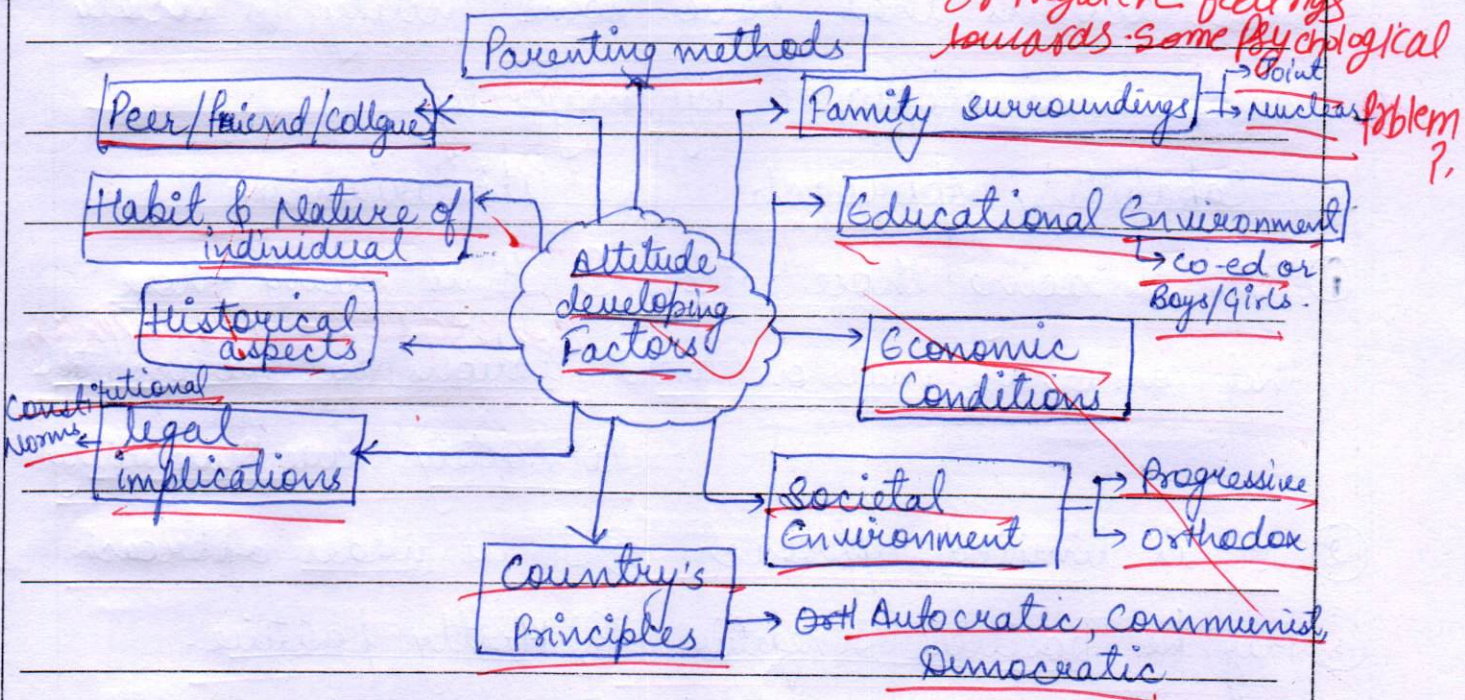 towards some Psychological
Problem
?
Parenting methods
Peer/friend/collgues
Family surroundings
→ Joint
→ Nuclear
Habit & Nature of
individual
Educational Environment
→ co-ed or
Boys/Girls.
Attitude
developing
Factors
Historical
aspects
Economic
Conditions
Constitutional
Norms
legal
implications
Societal
Environment
→ Progressive
→ Orthodox
Country's
Principles
→ Autocratic, Communist,
Democratic